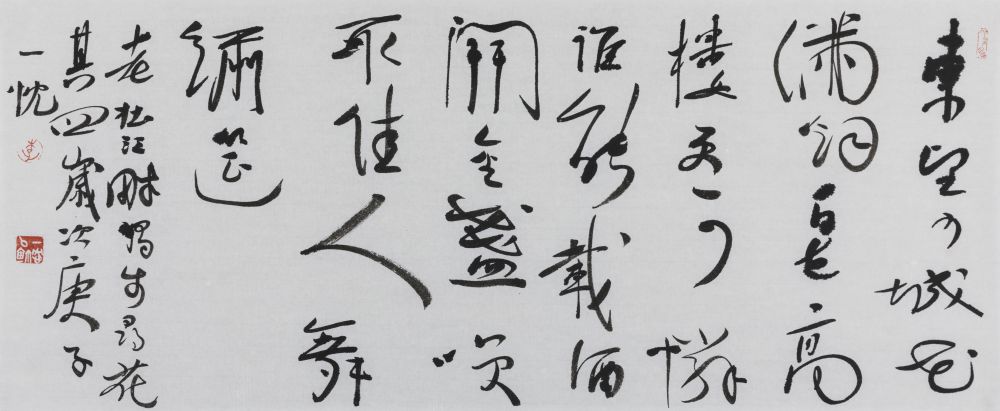 東望少城花
滿烟百花高
樓更可憐
誰能載酒
開金盞喚
取佳人舞
繡筵
老杜江畔獨步尋花
其四歲次庚子
一忱
李